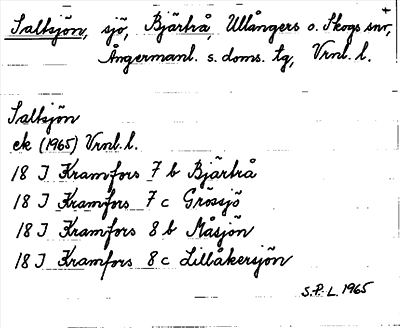 Saltsjön, sjö, Bjärtrå, Ullångers o. Skogs snr,
Ångermanl. s. doms. tg, Vrnl. l.
Saltsjön
ek (1965) Vrnl. l.
18 J Kramfors 7 b Bjärtrå
18 J Kramfors 7 c Grössjö
18 J Kramfors 8 b Måsjön
18 J Kramfors 8 c Lillåkersjön
S.P.L. 1965